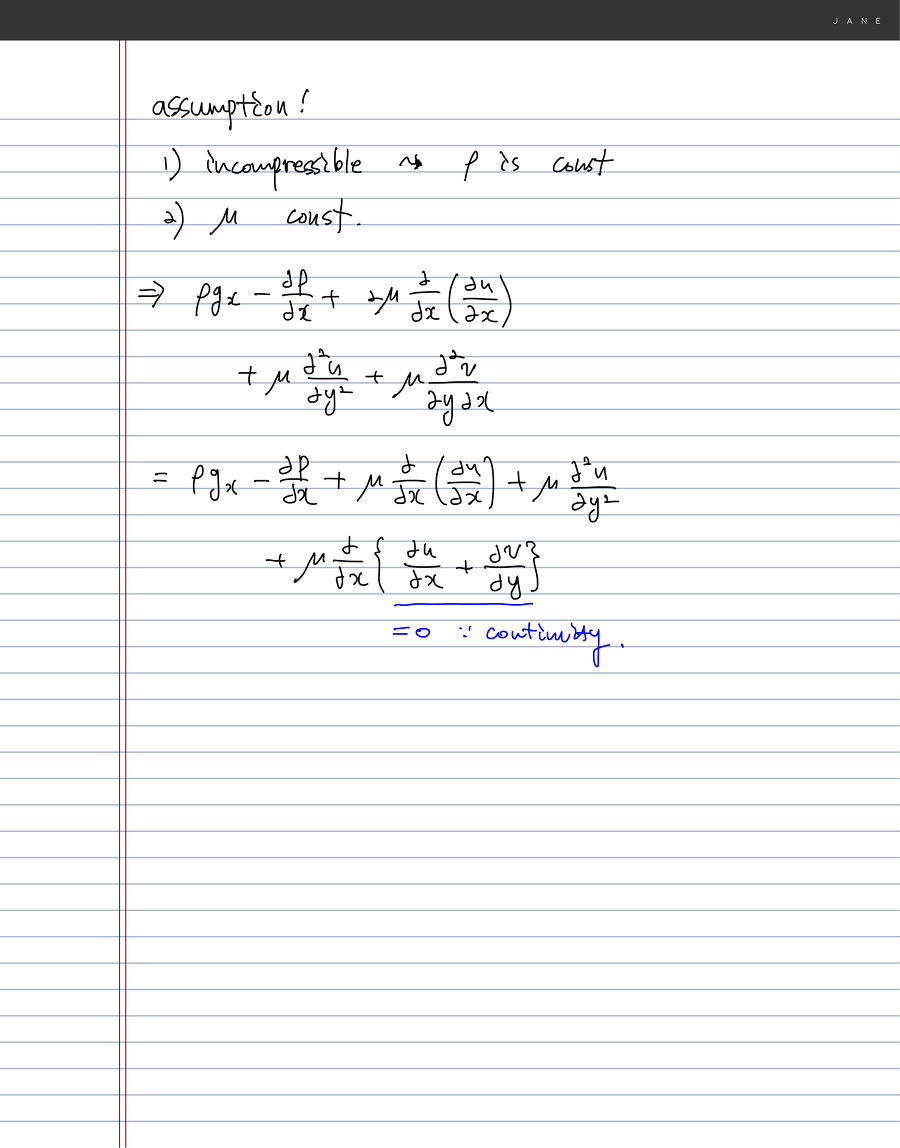 JANE
assumption!
1) incompressible ⇝ ρ is const
2) μ const.
⇒ ρgx − ∂P/∂x + 2μ ∂/∂x (∂u/∂x)
+ μ ∂²u/∂y² + μ ∂²v/∂y∂x
= ρgx − ∂P/∂x + μ ∂/∂x (∂u/∂x) + μ ∂²u/∂y²
+ μ ∂/∂x { ∂u/∂x + ∂v/∂y }
=0 ∵ continuity.